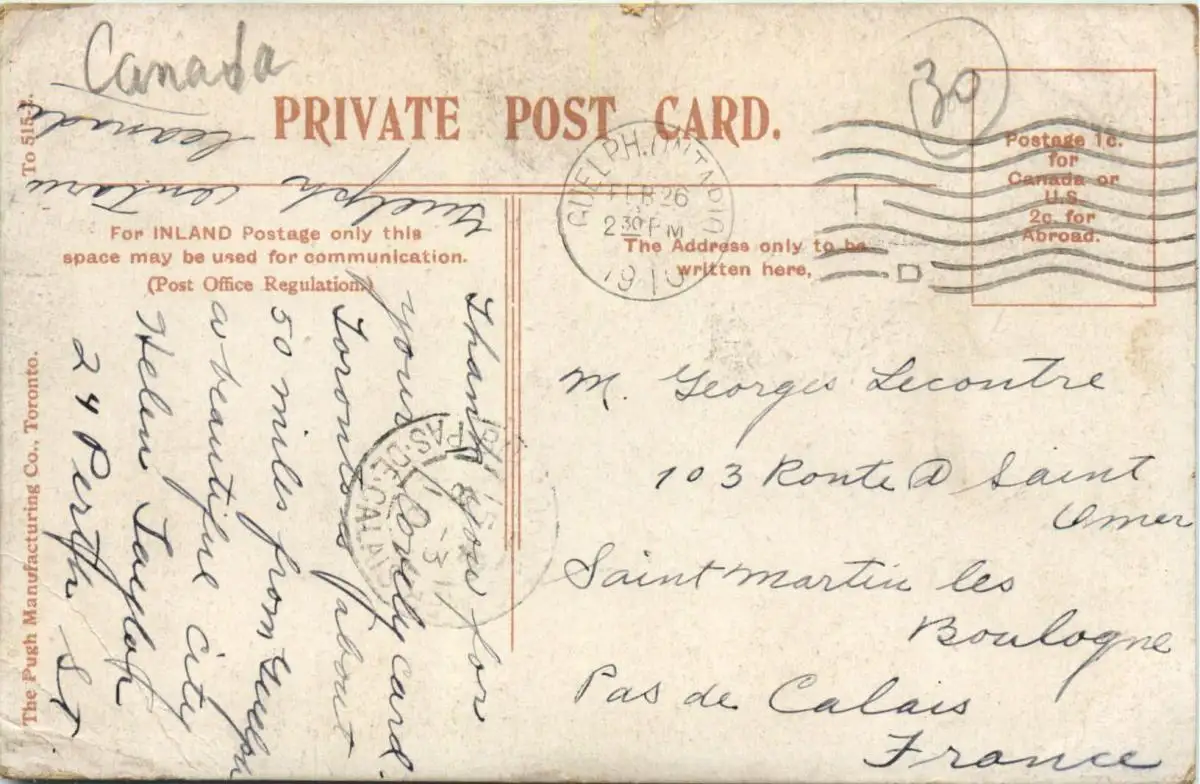 Canada
30
PRIVATE POST CARD.
To 515-3.
GUELPH. ONTARIO
FEB 26
2 30 PM
1910
Postage 1c.
for
Canada or
U.S.
2c. for
Abroad.
For INLAND Postage only this
space may be used for communication.
(Post Office Regulation.)
The Address only to be
written here,
Guelph Ontario
Canada
Thank you for
your lovely card.
Toronto is about
50 miles from Guelph
a beautiful city
Helen Taylor
24 Perth St.
M. Georges Lecontre
103 Route D Saint
Omer
Saint Martin les
Boulogne
Pas de Calais
France
PAS-DE-CALAIS
The Pugh Manufacturing Co., Toronto.